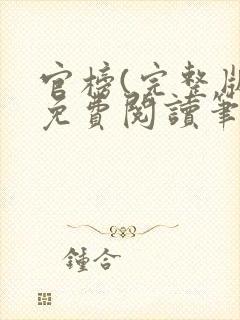 官榜(完整版
免費閱讀筆
鍾合